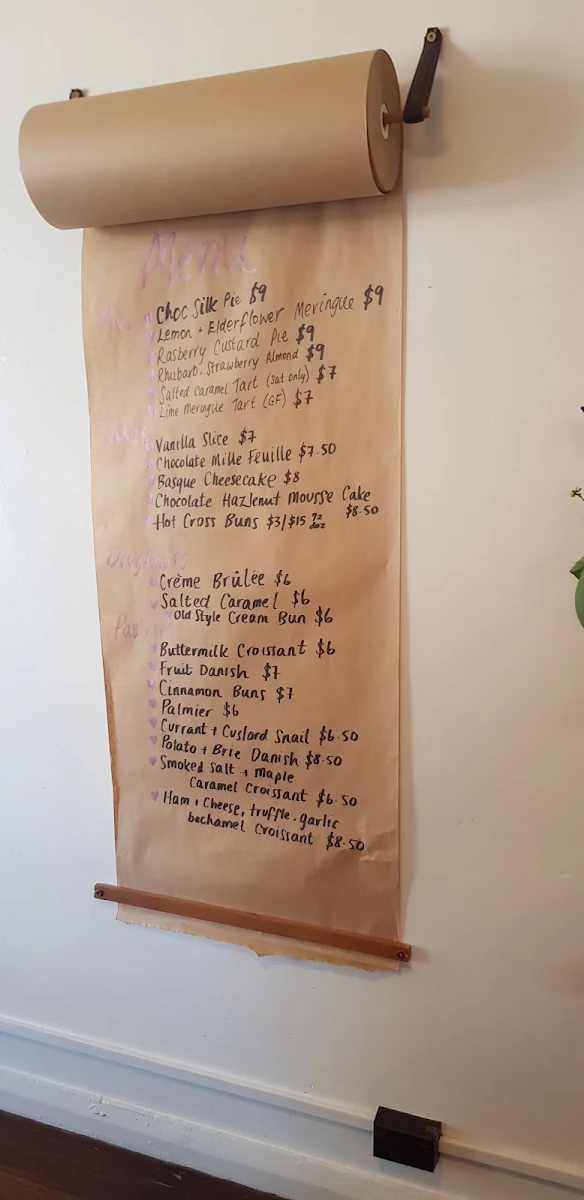 Menu
Pies
Choc Silk Pie $9
Lemon + Elderflower Meringue $9
Rasberry Custard Pie $9
Rhubarb, Strawberry Almond $9
Salted Caramel Tart (Sat only) $7
Lime Meringue Tart (GF) $7
Cakes
Vanilla Slice $7
Chocolate Mille Feuille $7.50
Basque Cheesecake $8
Chocolate Hazlenut Mousse Cake $8.50
Hot Cross Buns $3/$15 ½ doz
Doughnuts
Crème Brûlée $6
Salted Caramel $6
Old Style Cream Bun $6
Pastries
Buttermilk Croissant $6
Fruit Danish $7
Cinnamon Buns $7
Palmier $6
Currant + Custard Snail $6.50
Potato + Brie Danish $8.50
Smoked Salt + Maple
Caramel Croissant $6.50
Ham + Cheese, truffle-garlic
bechamel Croissant $8.50